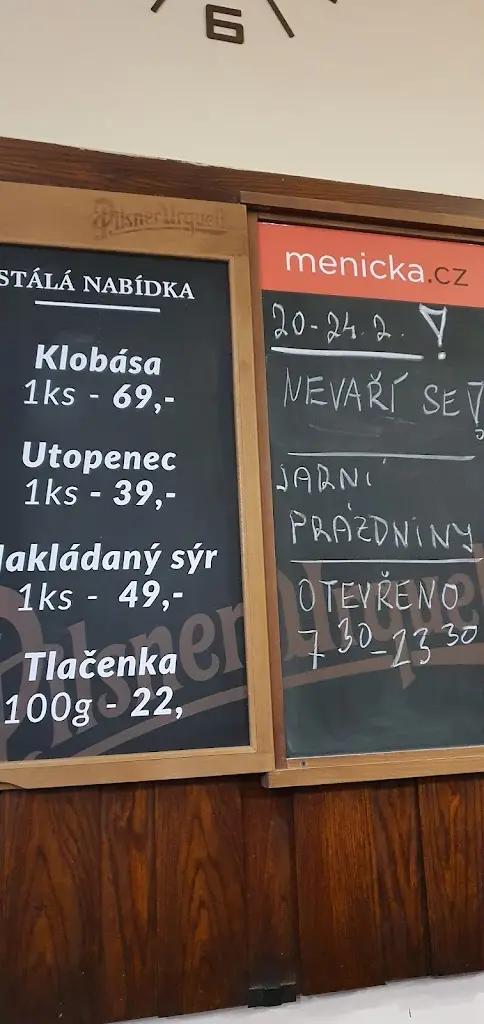 6
Pilsner Urquell
STÁLÁ NABÍDKA
Klobása
1ks - 69,-
Utopenec
1ks - 39,-
Nakládaný sýr
1ks - 49,-
Tlačenka
100g - 22,
Pilsner Urquell
menicka.cz
20-24.2. !
NEVAŘÍ SE!
JARNÍ
PRÁZDNINY
OTEVŘENO
7 30 - 23 30